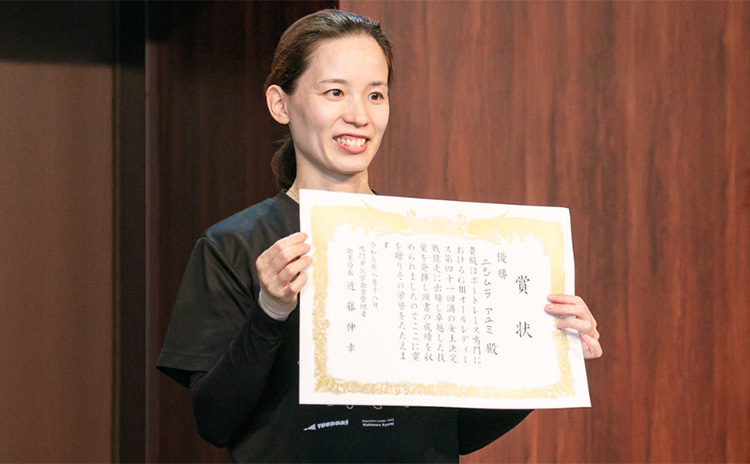 賞状
優勝
ニシムラ アユミ 殿
貴殿はボートレース鳴門に
おけるGⅢオールレディー
ス第四十一回渦の女王決定
戦競走に出場し卓越した技
量を発揮し頭書の成績を収
められましたのでここに賞
を贈りその栄誉をたたえま
す
令和七年八月十八日
鳴門市公営企業管理者
企業局長 近藤伸幸
Nishimura Ayumi